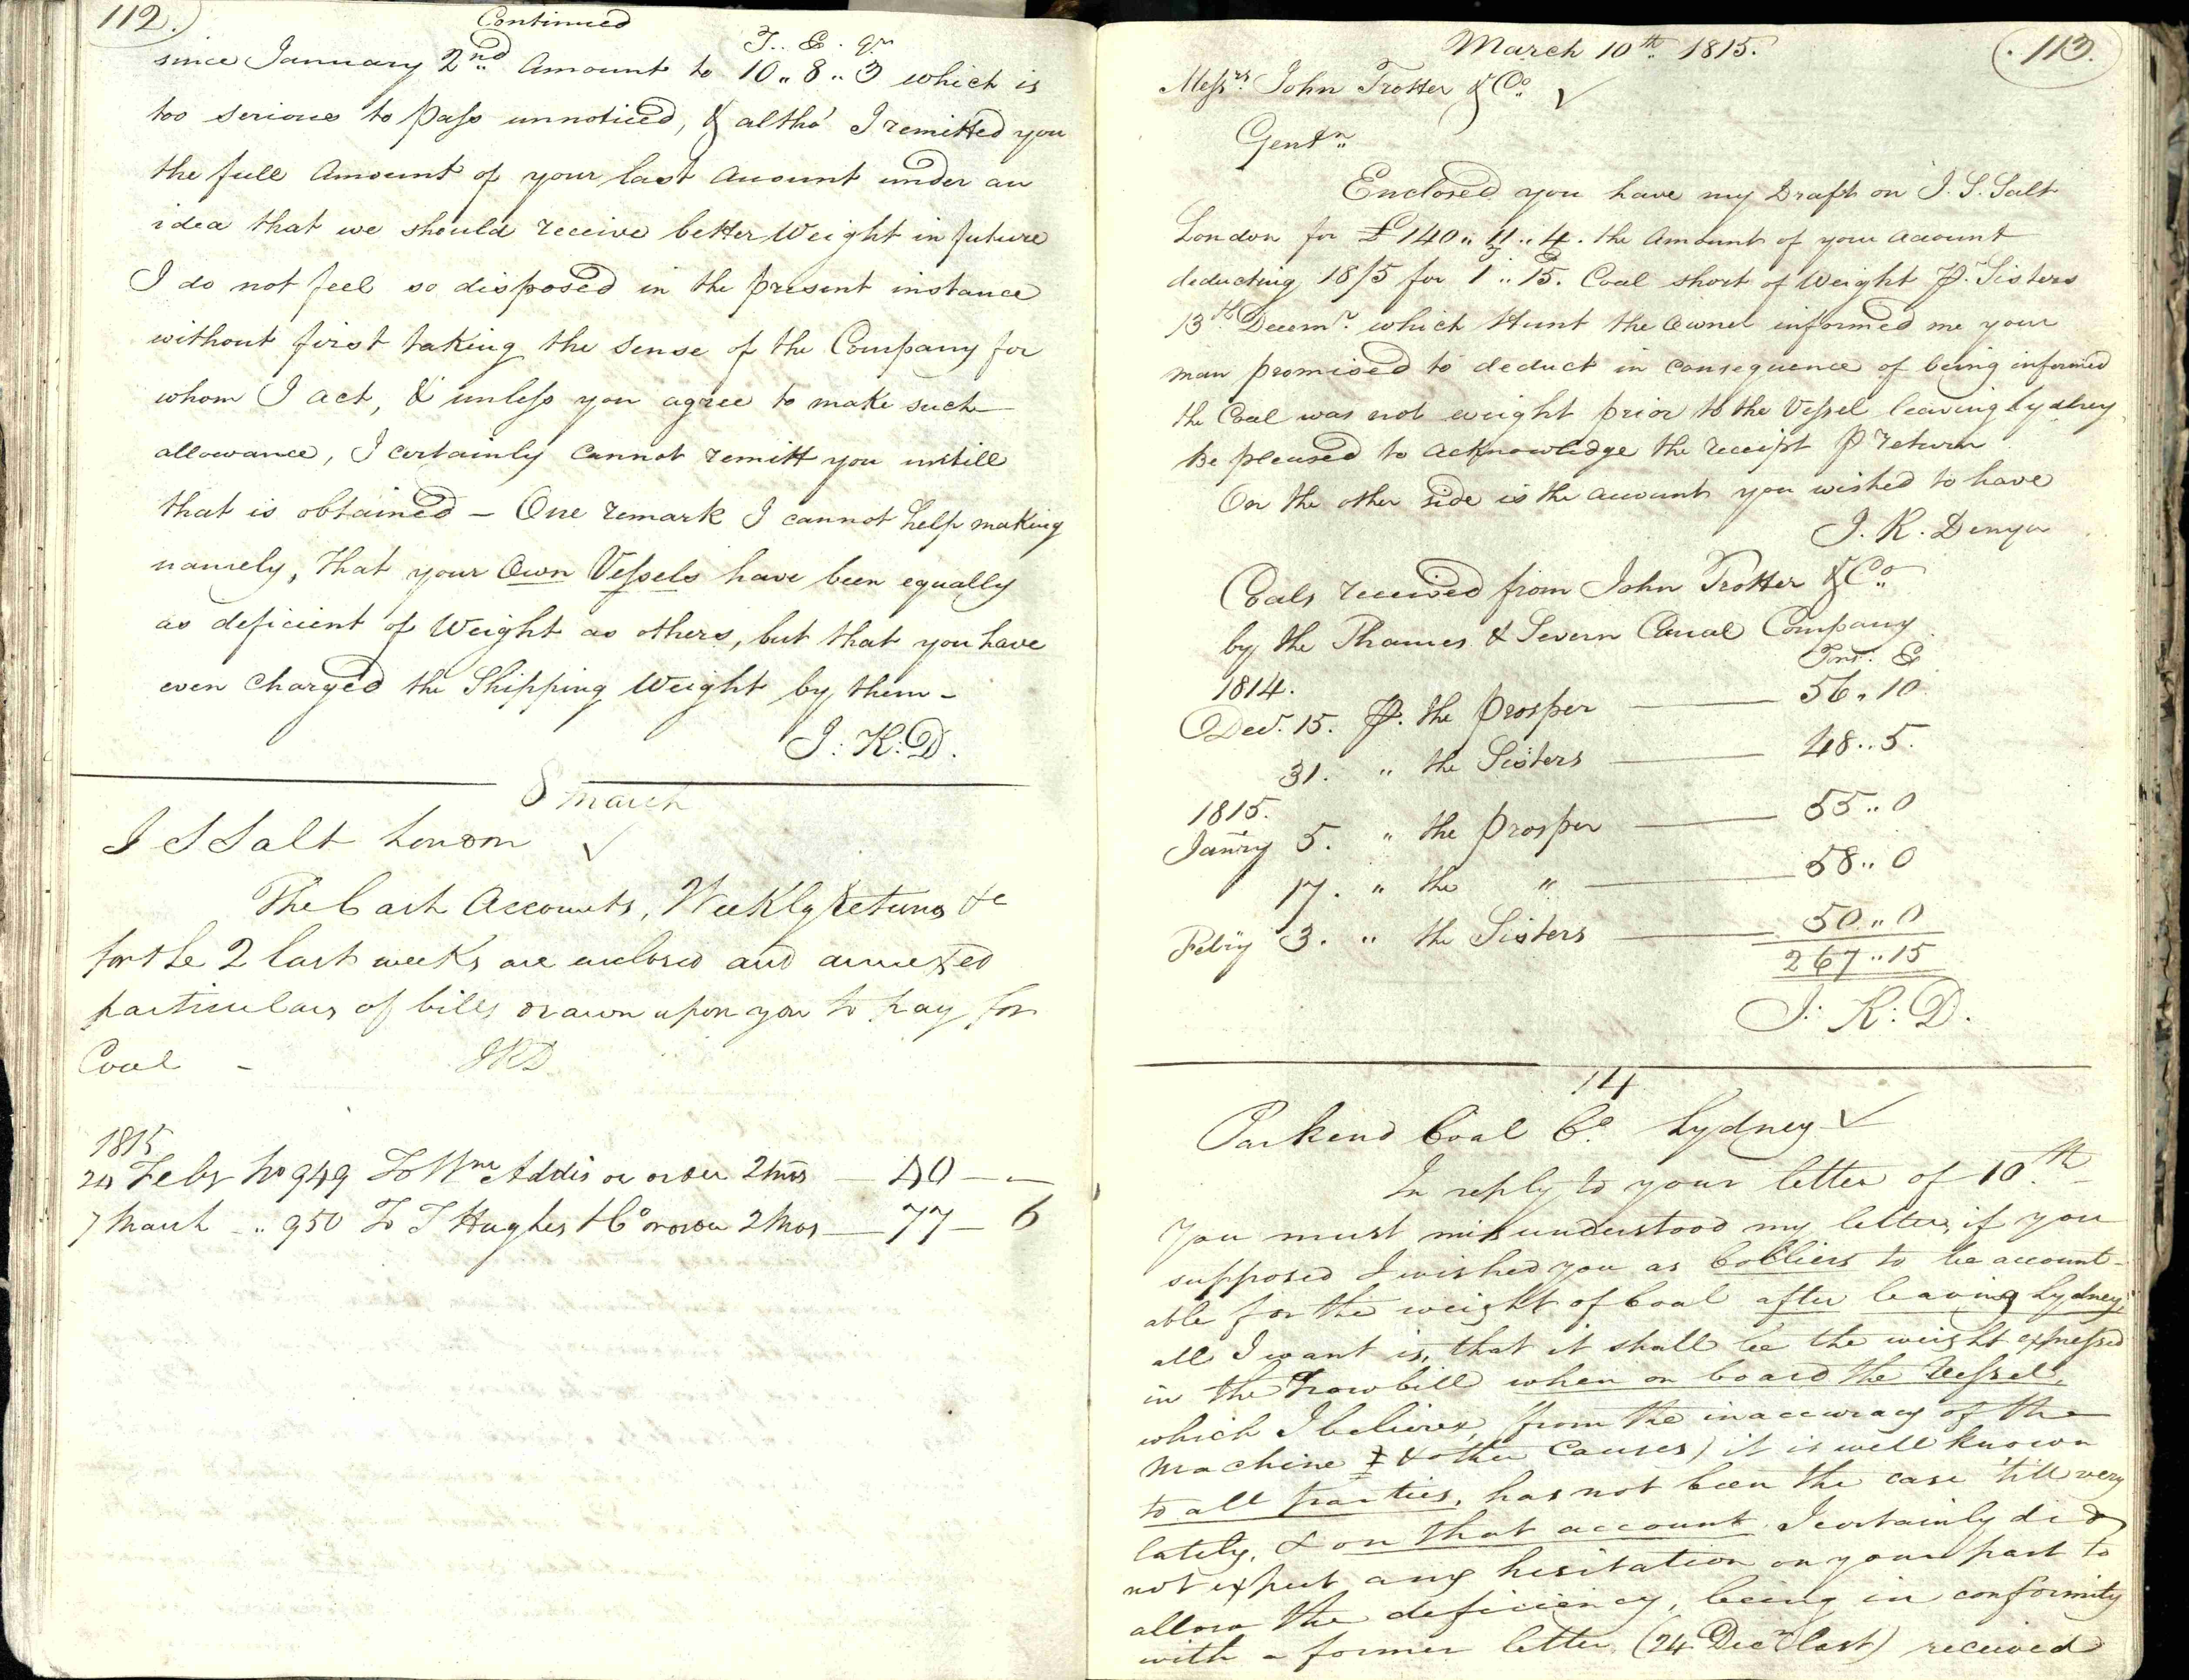 112.
Continued
T.. C. qr
since January 2nd Amount to 10..8..3 which is
too serious to pass unnoticed, & altho' I remitted you
the full Amount of your last Account under an
idea that we should receive better Weight in future
I do not feel so disposed in the present instance
without first taking the sense of the Company for
whom I act, & unless you agree to make such
allowance, I certainly cannot remitt you untill
that is obtained – One remark I cannot help making
namely, that your Own Vessels have been equally
as deficient of Weight as others, but that you have
even Charged the Shipping Weight by them –
J: K: D.
8 March
J S Salt London ✓
The Cash Accounts, Weekly Returns &c
for the 2 last weeks are enclosed and annexed
particulars of bills drawn upon you to pay for
Coal – JKD
1815
24 Feby No 949 To Wm Addis or order 2 mos — 40 — —
7 March – .. 950 To T Hughes & Co or order 2 Mos — 77 — 6
March 10th 1815.
113.
Messrs. John Trotter & Co. ✓
Gentn..
Enclosed you have my Draft on J. S. Salt
London for £140.. 11..4. the Amount of your Account
T C
deducting 18/5 for 1..15. Coal short of Weight P. Sisters
13th. Decemr. which Hunt the Owner informed me your
man promised to deduct in consequence of being informed
the Coal was not weight prior to the Vessel leaving Lydney.
be pleased to acknowledge the receipt P return
On the other side is the account you wished to have
J. K. Denyer
Coals received from John Trotter & Co..
by the Thames & Severn Canal Company
Tons. C
1814.
Decr. 15. P. the Prosper — 56.. 10.
31. " the Sisters — 48..5.
1815.
Janry 5. " the Prosper — 55..0
17. " the " — 58..0
Febry 3. " the Sisters — 50..0
267..15
J: K: D.
14
Parkend Coal Co. Lydney ✓
In reply to your letter of 10th.
You must misunderstood my letter, if you
supposed I wished you as Colliers to be account-
able for the weight of Coal after leaving Lydney;
all I want is, that it shall be the weight expressed
in the Trowbill when on board the Vessel,
which I believe, (from the inaccuracy of the
Machine & other Causes) it is well known
to all parties, has not been the case 'till very
lately, & on that account I certainly did
not expect any hesitation on your part to
allow the deficiency, being in conformity
with a former letter (24 Decr last) received